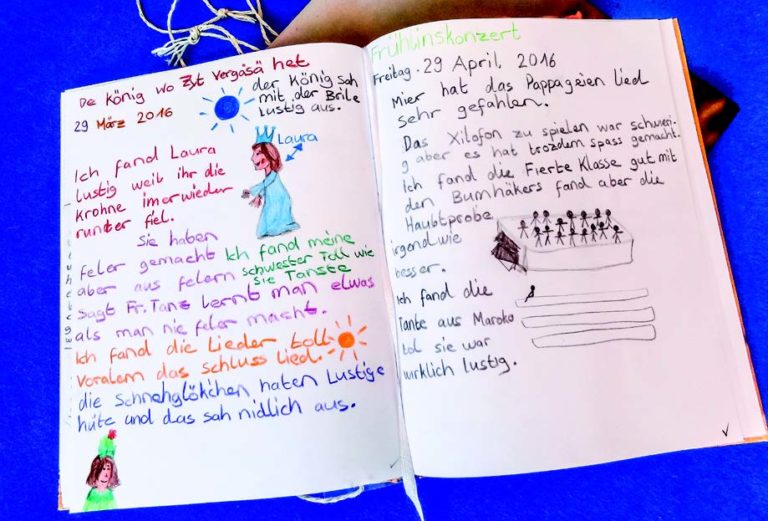 De König wo Zyt Vergäsä het
29 März 2016
der König sah
mit der Brile
lustig aus.
Laura
Ich fand Laura
lustig weil ihr die
krohne imerwieder
runter fiel.
sie haben
feler gemacht Ich fand meine
aber aus felern schwester Toll wie
sie Tanste
sagt Fr. Tanz lernt man etwas
als man nie feler macht.
Ich fand die Lieder toll
Voralem das schluss Lied.
die Schnehglökchen haten Lustige
hüte und das sah nidlich aus.
Frühlinskonzert
Freitag. 29 April, 2016
Mier hat das Pappageien lied
sehr gefahlen.
Das Xilofon zu spielen war schwieri-
g aber es hat trozdem spass gemacht.
Ich fand die Fierte Klasse gut mit
den Bumhäkers fand aber die
Haubtprobe
irgendwie
besser.
Ich fand die
Tante aus Maroko
tol sie war
wirklich lustig.